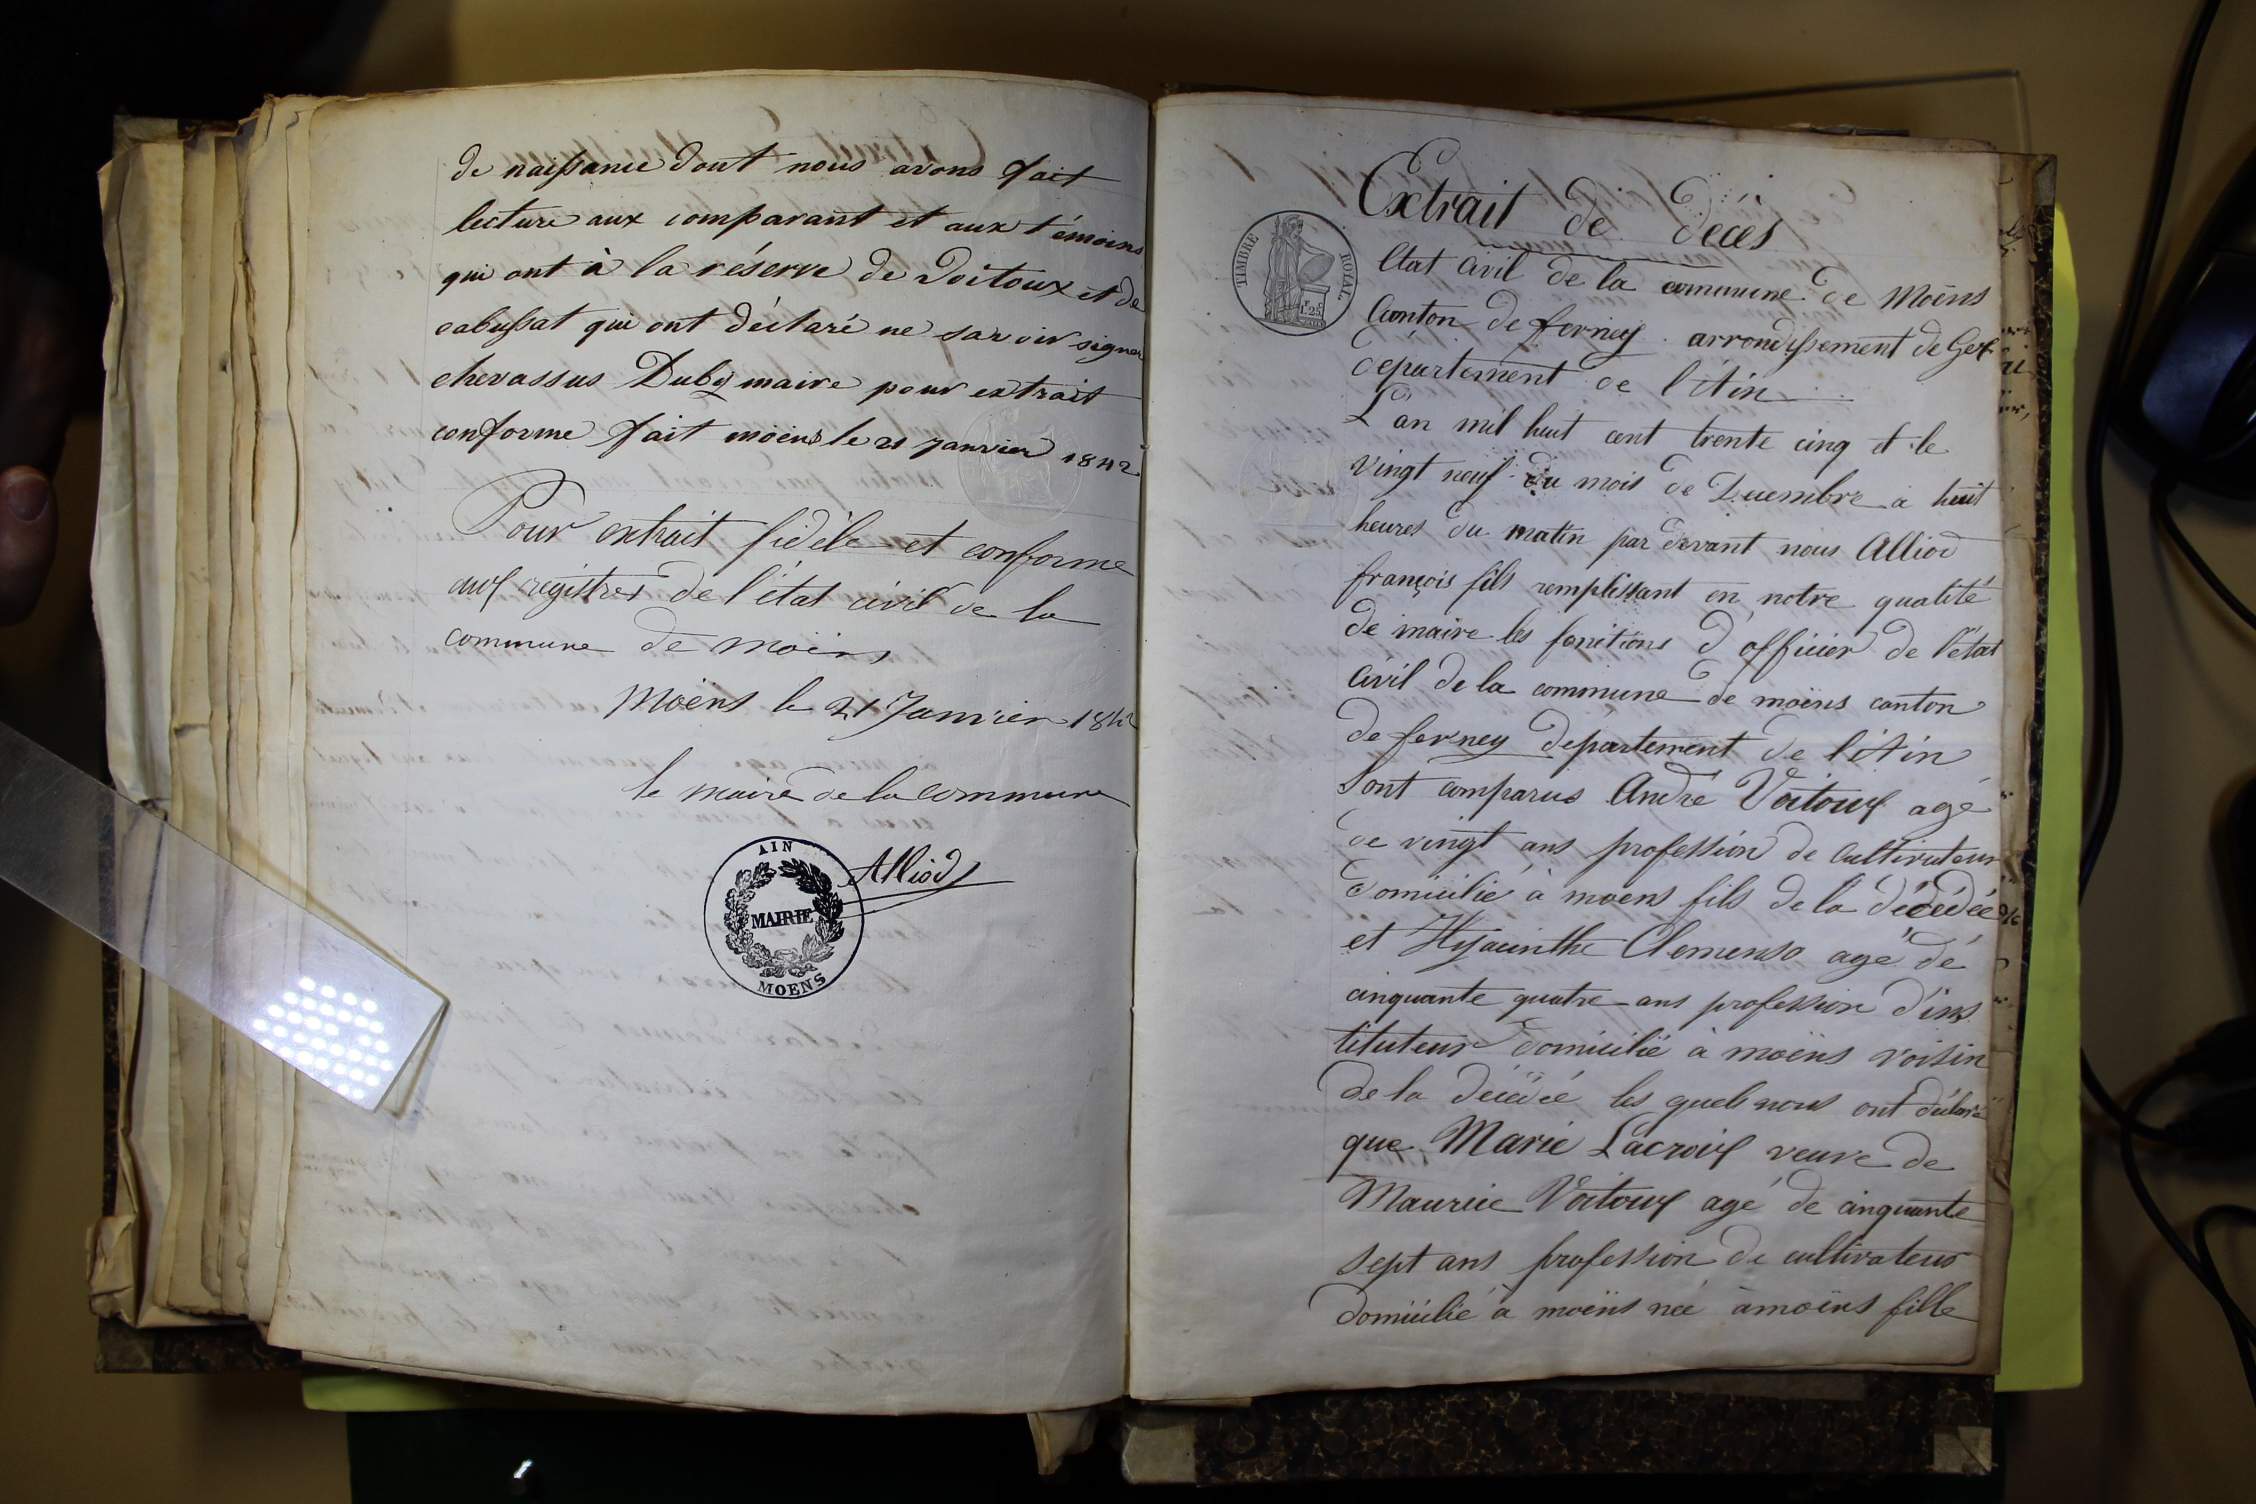 de naissance dont nous avons fait
lecture aux comparant et aux témoins
qui ont à la réserve de Voitoux et de
cabussat qui ont déclaré ne savoir signer
chevassus Duby maire pour extrait
conforme fait moëns le 21 Janvier 1842
Pour extrait fidèle et conforme
aux registres de l'état civil de la
commune de moëns
Moëns le 21 Janvier 1842
le maire de la commune
Alliod
AIN
MAIRIE
MOENS
Extrait de décès
TIMBRE ROYAL
1.25
Etat civil de la commune de Moëns
Canton de ferney arrondissement de Gex
département de l'Ain
L'an mil huit cent trente cinq et le
vingt neuf du mois de Decembre à huit
heures du matin par devant nous Alliod
françois fils remplissant en notre qualité
de maire les fonctions d'officier de l'état
civil de la commune de moëns canton
de ferney département de l'Ain
Sont comparus André Voitoux agé
de vingt ans profession de cultivateur
domicilié à moëns fils de la décédée
et Hyacinthe Clemenso agé de
cinquante quatre ans profession d'ins
tituteur domicilié à moëns voisin
de la décédé les quels nous ont déclaré
que Marie Lacroix veuve de
Maurice Voitoux agé de cinquante
sept ans profession de cultivateur
domicilié à moëns née à moëns fille